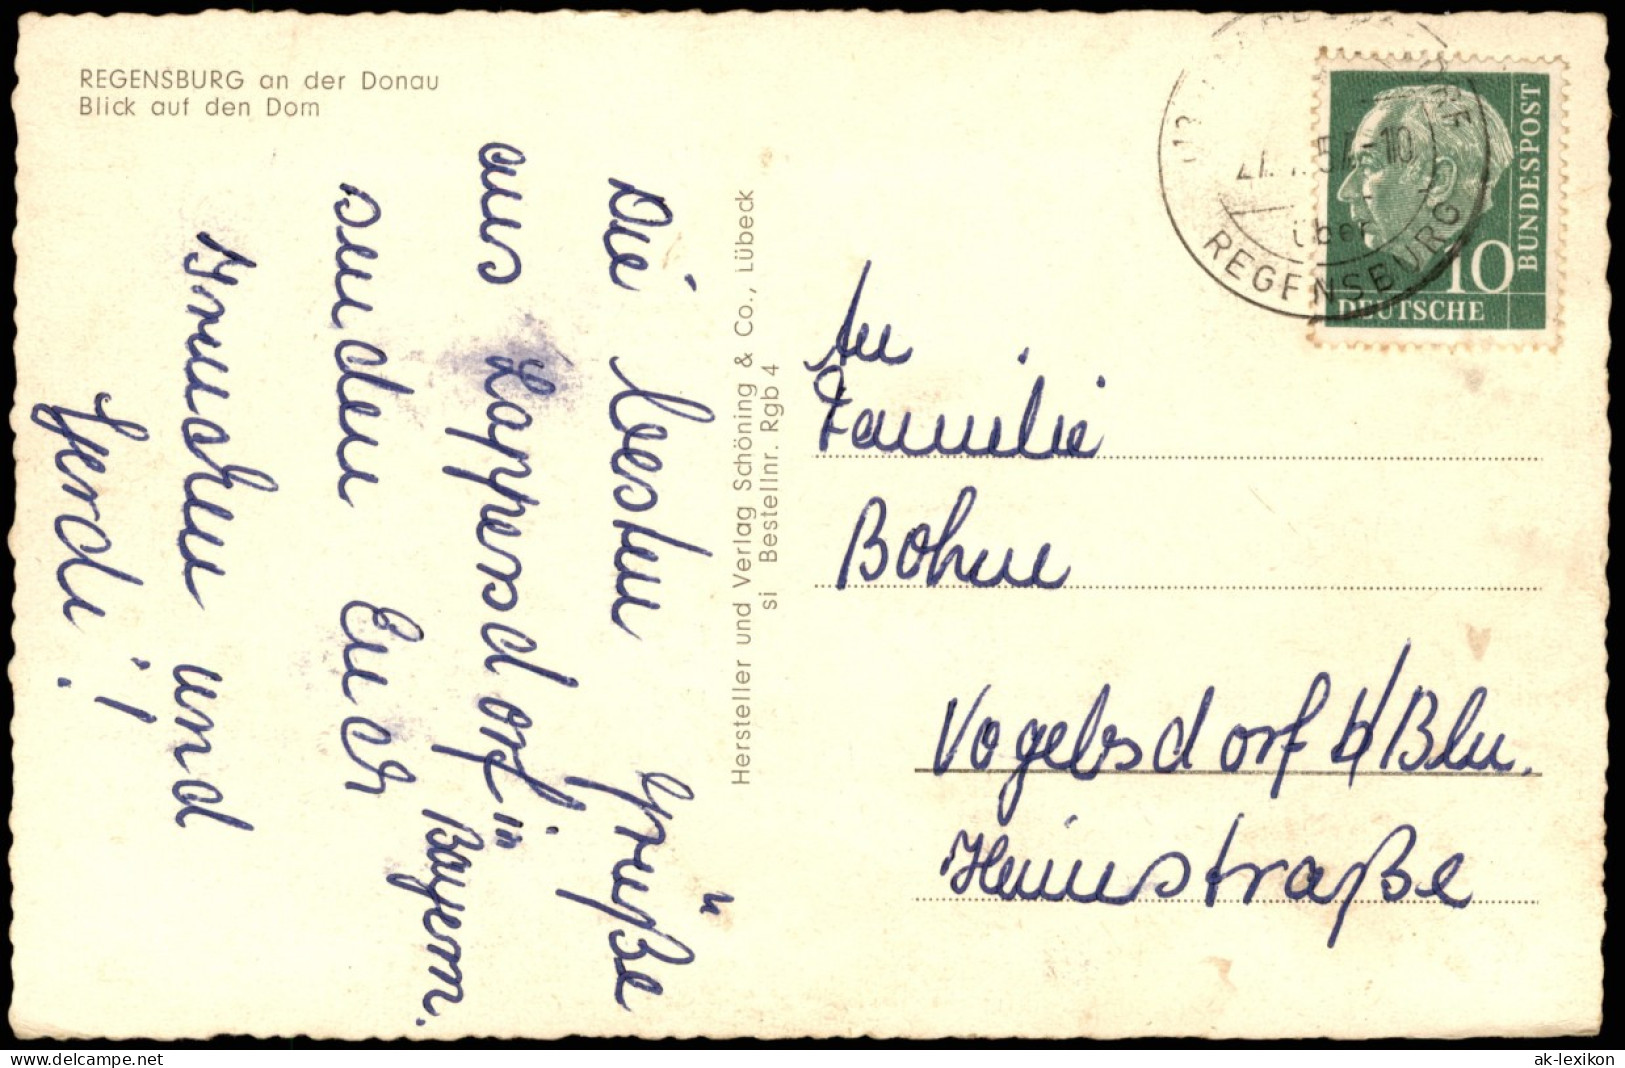 REGENSBURG an der Donau
Blick auf den Dom
Die besten Grüße
aus Lappersdorf in Bayern.
senden Euch
und
Gerdi!
Hersteller und Verlag Schöning & Co., Lübeck
si Bestellnr. Rgb 4
An
Familie
Bohne
Vogelsdorf b/Bln.
Heinestraße
über
REGENSBURG
10
DEUTSCHE
BUNDESPOST
ak-lexikon.de
ak-lexikon